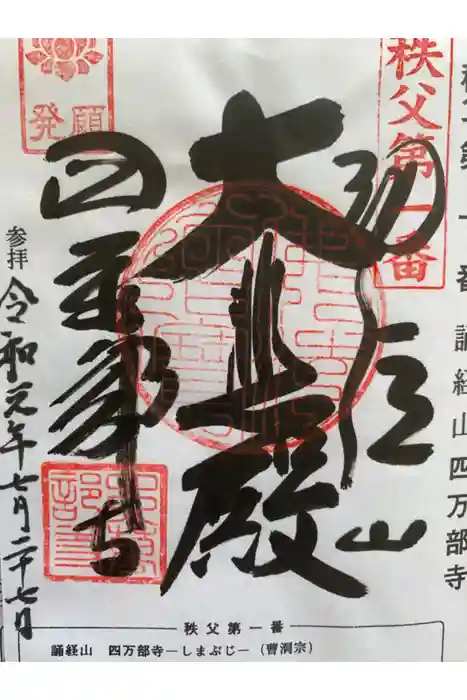 秩父第一番 誦経山四万部寺
秩父第一番
誦経山
大悲殿
四萬部寺
発願
参拝 令和元年七月二十七日
秩父第一番
誦経山 四万部寺―しまぶじ―(曹洞宗)